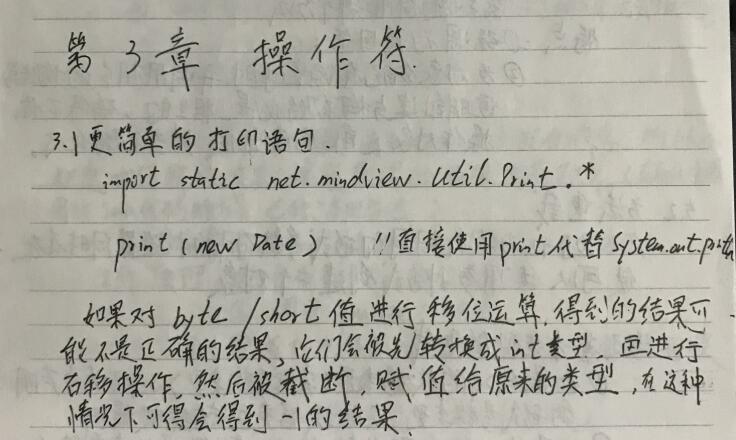 第3章 操作符.
3.1更简单的打印语句.
import static net.mindview.util.Print.*
print(new Date) //直接使用print代替System.out.println
如果对byte/short值进行移位运算,得到的结果可
能不是正确的结果,它们会被先转换成int类型,再进行
右移操作,然后被截断,赋值给原来的类型,在这种
情况下可得会得到-1的结果.